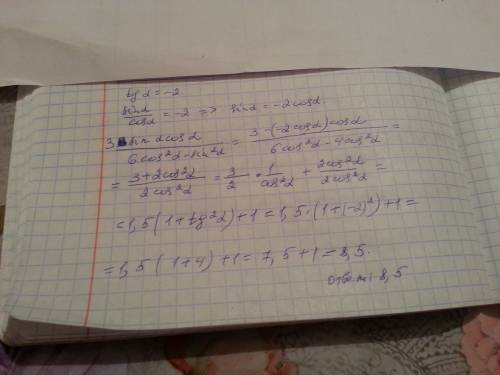 tg α = -2.
sinα/cosα = -2 => sinα = -2cosα.
3 - sinα cosα / 6cos²α - sin²α = 3 - (-2cosα)cosα / 6cos²α - 4cos²α =
= 3 + 2cos²α / 2cos²α = 3/2 · 1/cos²α + 2cos²α / 2cos²α =
= 1,5(1 + tg²α) + 1 = 1,5 · (1 + (-2)²) + 1 =
= 1,5(1 + 4) + 1 = 7,5 + 1 = 8,5.
Ответ: 8,5